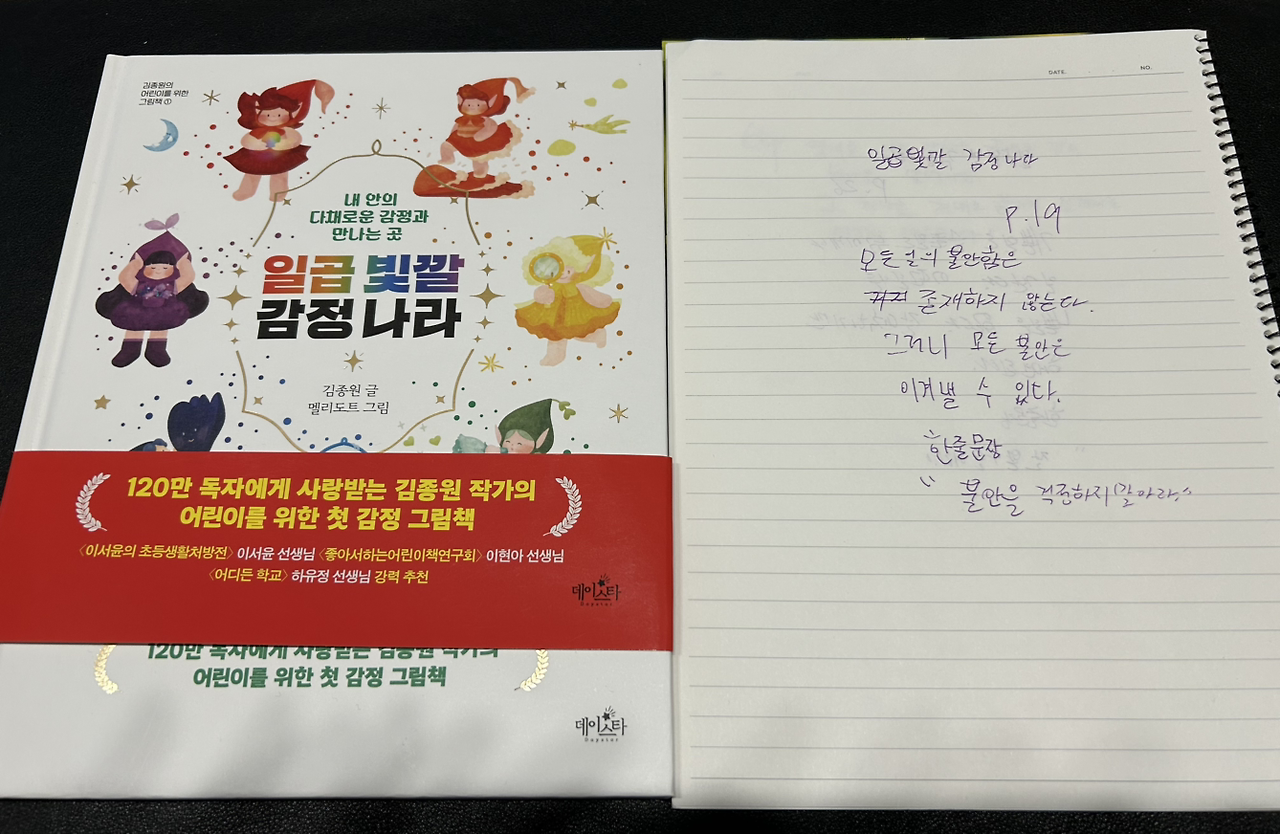 김종원의
어린이를 위한
그림책 ①
내 안의
다채로운 감정과
만나는 곳
일곱 빛깔
감정 나라
김종원 글
멜리도트 그림
120만 독자에게 사랑받는 김종원 작가의
어린이를 위한 첫 감정 그림책
〈이서윤의 초등생활처방전〉 이서윤 선생님 〈좋아서하는어린이책연구회〉 이현아 선생님
〈어디든 학교〉 하유정 선생님 강력 추천
데이스타
Daystar
120만 독자에게 사랑받는 김종원 작가의
어린이를 위한 첫 감정 그림책
데이스타
Daystar
DATE. NO.
일곱빛깔 감정나라
P.19
모든 불안함은
존재하지 않는다.
그러니 모든 불안은
이겨낼 수 있다.
한줄문장
" 불안을 걱정하지말아라"